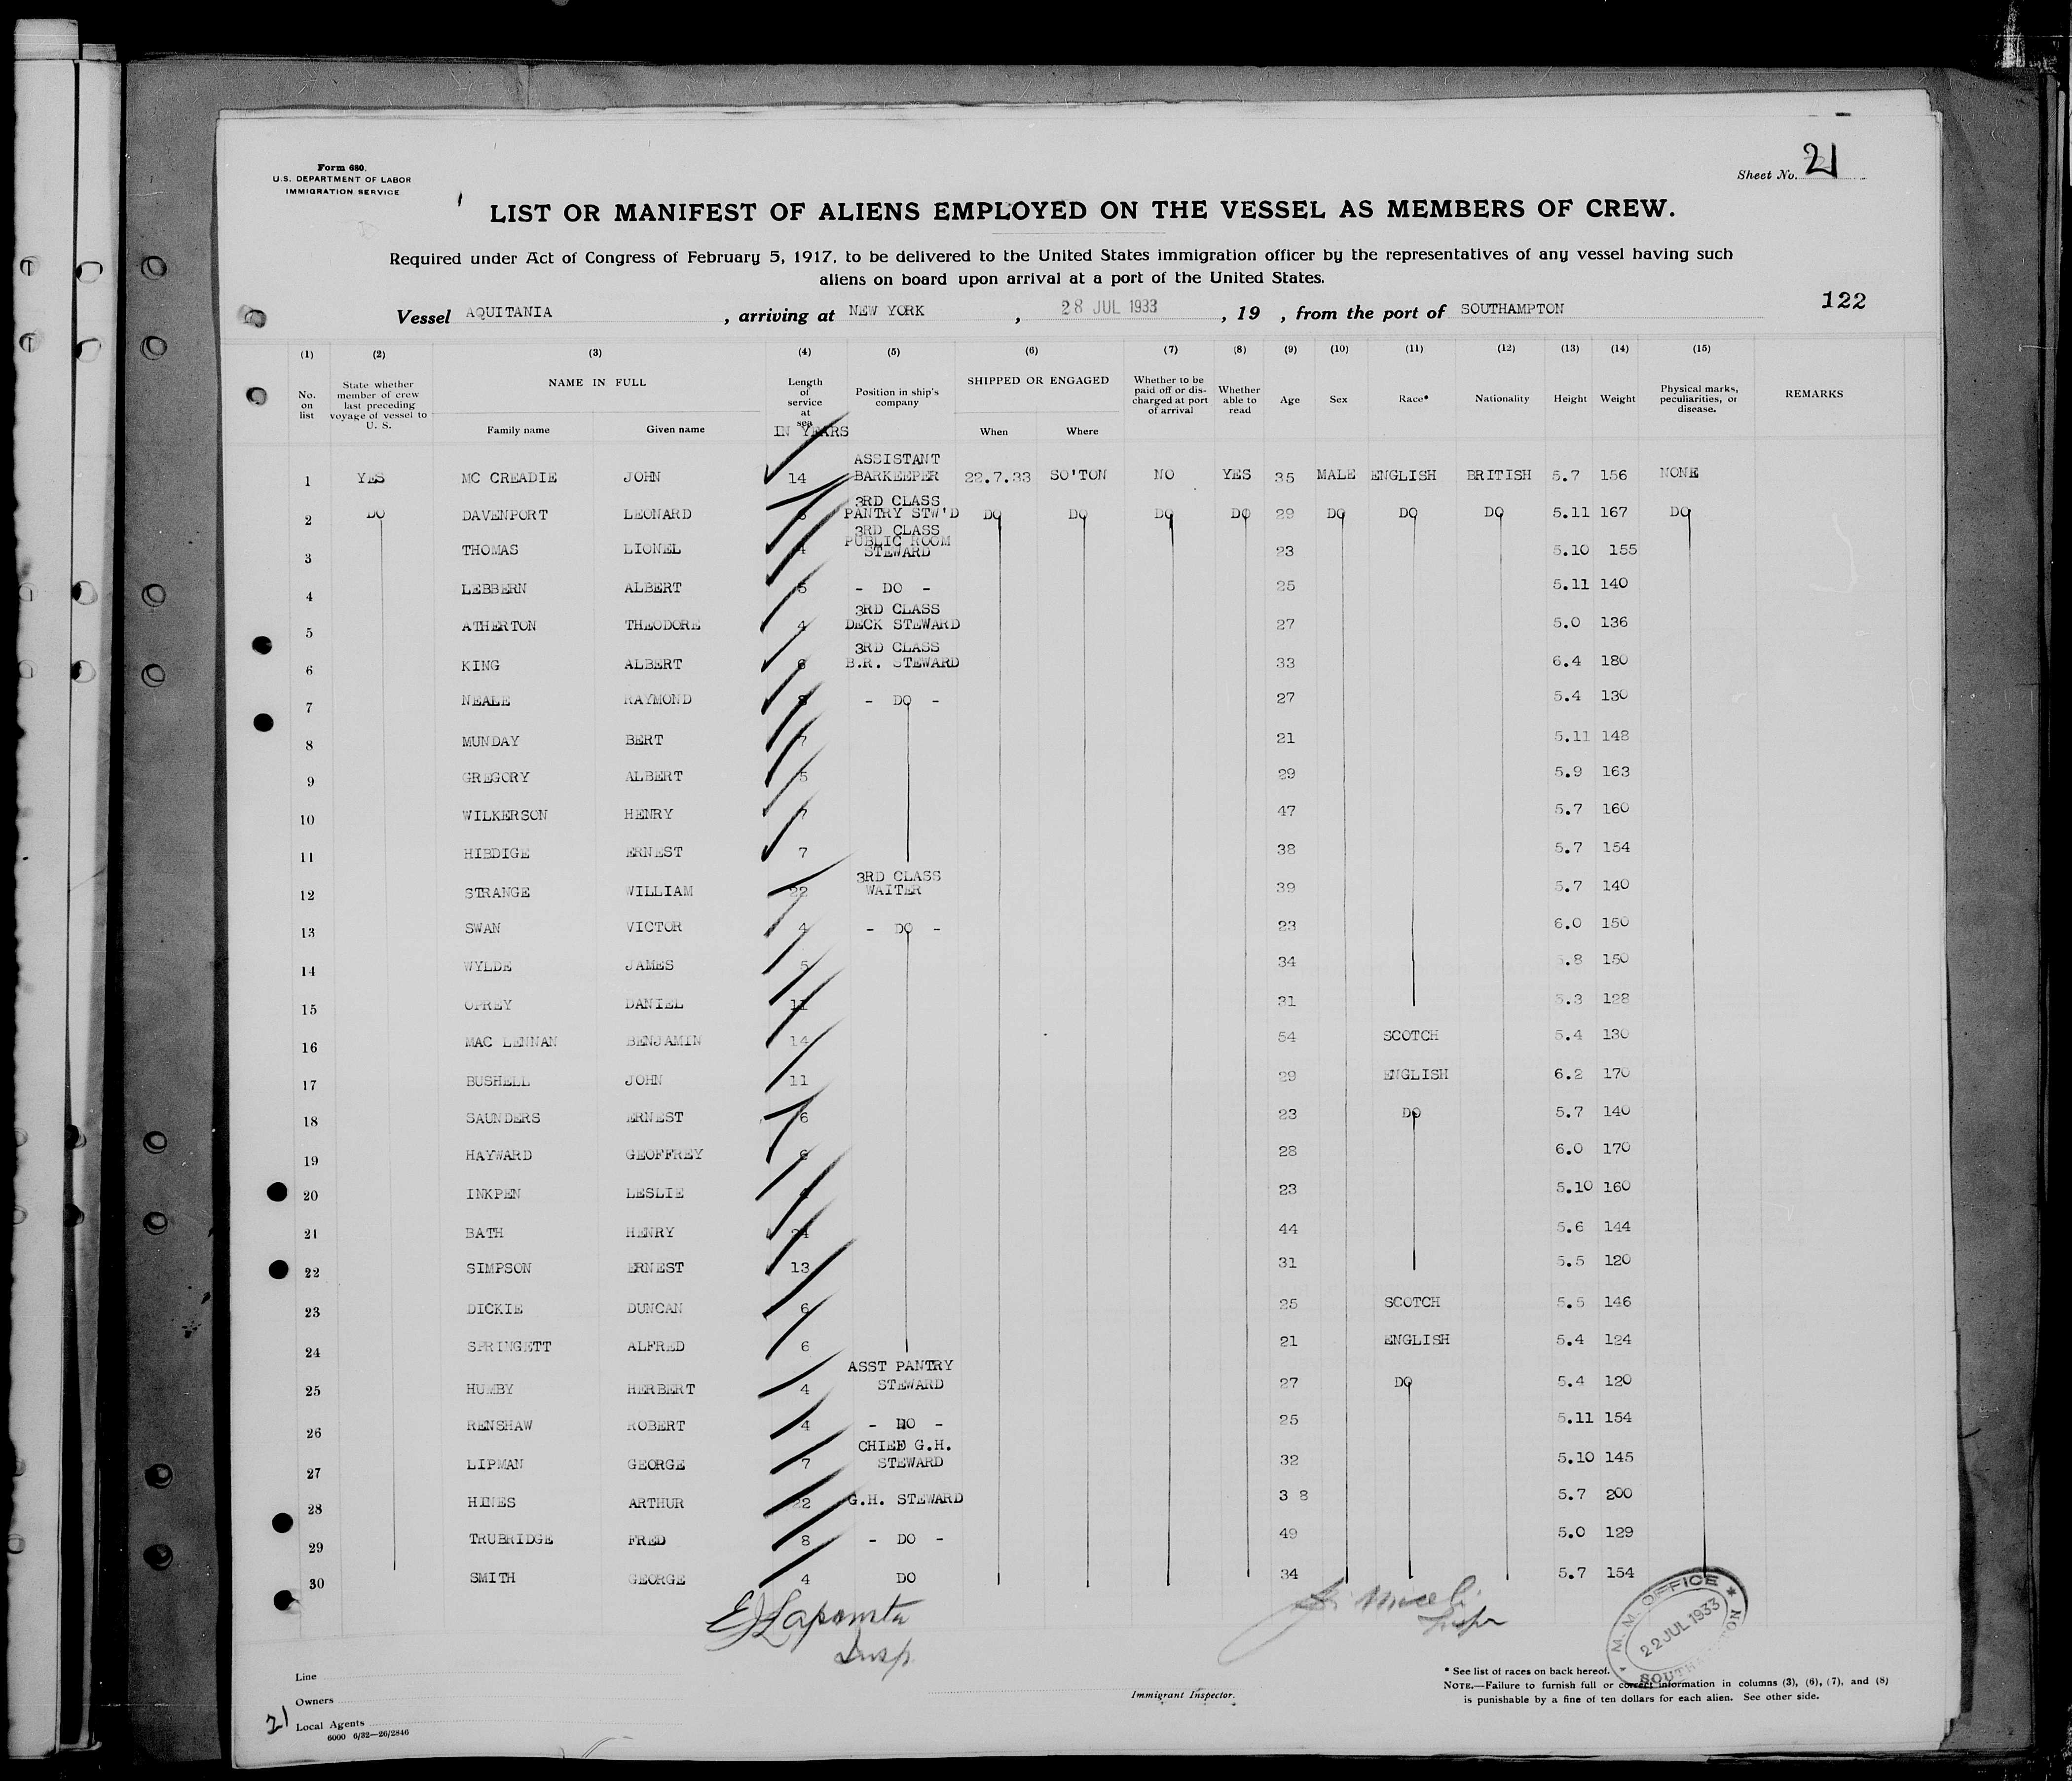 Form 680.
U.S. DEPARTMENT OF LABOR
IMMIGRATION SERVICE
Sheet No. 21
LIST OR MANIFEST OF ALIENS EMPLOYED ON THE VESSEL AS MEMBERS OF CREW.
Required under Act of Congress of February 5, 1917, to be delivered to the United States immigration officer by the representatives of any vessel having such
aliens on board upon arrival at a port of the United States.
122
Vessel AQUITANIA , arriving at NEW YORK , 28 JUL 1933 , 19 , from the port of SOUTHAMPTON
(1) (2) (3) (4) (5) (6) (7) (8) (9) (10) (11) (12) (13) (14) (15)
No. on list
State whether member of crew last preceding voyage of vessel to U. S.
NAME IN FULL
Family name Given name
Length of service at sea
IN YEARS
Position in ship's company
SHIPPED OR ENGAGED
When Where
Whether to be paid off or discharged at port of arrival
Whether able to read
Age Sex Race* Nationality Height Weight
Physical marks, peculiarities, or disease.
REMARKS
1 YES MC CREADIE JOHN 14 ASSISTANT BARKEEPER 22.7.33 SO'TON NO YES 35 MALE ENGLISH BRITISH 5.7 156 NONE
2 DO DAVENPORT LEONARD 3RD CLASS PANTRY STW'D DO DO DO DO 29 DO DO DO 5.11 167 DO
3 THOMAS LIONEL 4 3RD CLASS PUBLIC ROOM STEWARD 23 5.10 155
4 LEBBERN ALBERT 5 - DO - 25 5.11 140
5 ATHERTON THEODORE 4 3RD CLASS DECK STEWARD 27 5.0 136
6 KING ALBERT 6 3RD CLASS B.R. STEWARD 33 6.4 180
7 NEALE RAYMOND 8 - DO - 27 5.4 130
8 MUNDAY BERT 7 21 5.11 148
9 GREGORY ALBERT 5 29 5.9 163
10 WILKERSON HENRY 7 47 5.7 160
11 HIBDIGE ERNEST 7 38 5.7 154
12 STRANGE WILLIAM 22 3RD CLASS WAITER 39 5.7 140
13 SWAN VICTOR 4 - DO - 23 6.0 150
14 WYLDE JAMES 5 34 5.8 150
15 OPREY DANIEL 11 31 5.3 128
16 MAC LENNAN BENJAMIN 14 54 SCOTCH 5.4 130
17 BUSHELL JOHN 11 29 ENGLISH 6.2 170
18 SAUNDERS ERNEST 6 23 DO 5.7 140
19 HAYWARD GEOFFREY 6 28 6.0 170
20 INKPEN LESLIE 23 5.10 160
21 BATH HENRY 24 44 5.6 144
22 SIMPSON ERNEST 13 31 5.5 120
23 DICKIE DUNCAN 6 25 SCOTCH 5.5 146
24 SPRINGETT ALFRED 6 21 ENGLISH 5.4 124
25 HUMBY HERBERT 4 ASST PANTRY STEWARD 27 DO 5.4 120
26 RENSHAW ROBERT 4 - DO - 25 5.11 154
27 LIPMAN GEORGE 7 CHIEF G.H. STEWARD 32 5.10 145
28 HINES ARTHUR 22 G.H. STEWARD 3 8 5.7 200
29 TRUBRIDGE FRED 8 - DO - 49 5.0 129
30 SMITH GEORGE 4 DO 34 5.7 154
Insp.
M. M. OFFICE
22 JUL 1933
Line
Owners
Local Agents
21
6000 6/32—26/2846
Immigrant Inspector.
* See list of races on back hereof.
NOTE.—Failure to furnish full or correct information in columns (3), (6), (7), and (8)
is punishable by a fine of ten dollars for each alien. See other side.